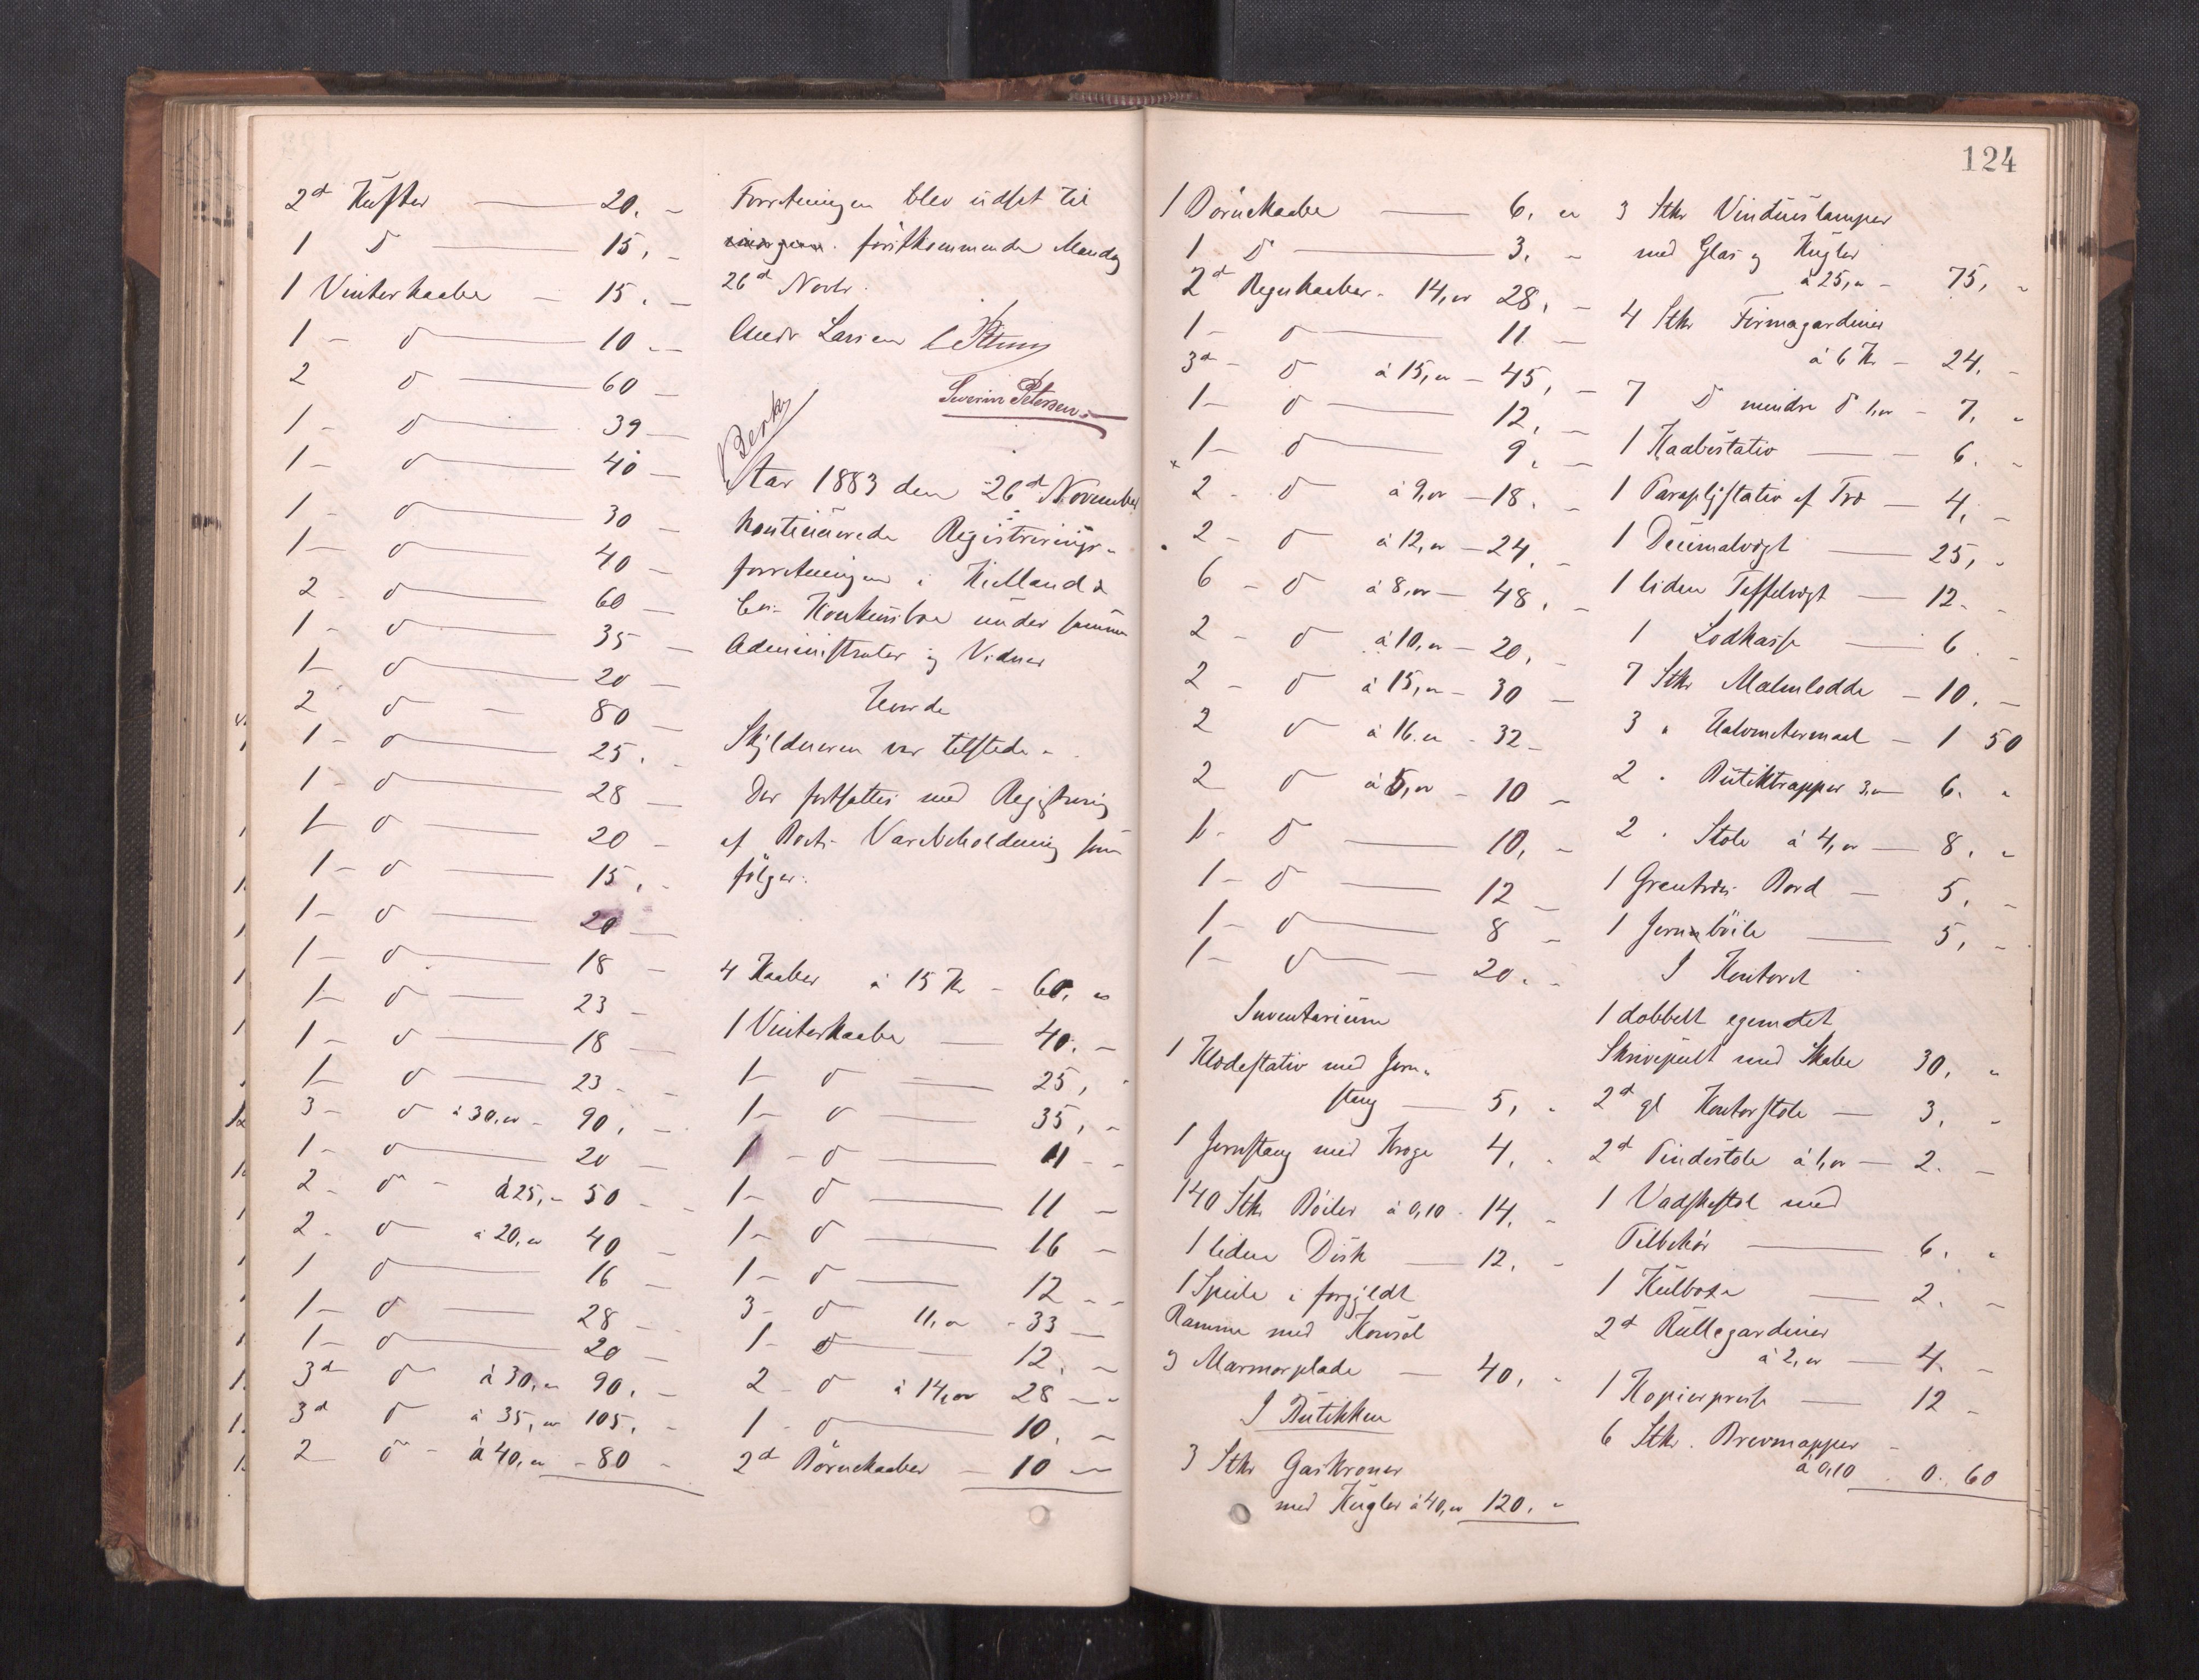 2d Kufter — 20. –
1 D — 15, –
1 Vinterkaabe – 15. –
1 – d — 10 –
2 d — 60 –
1 – d — 39 –
1 – d — 40 –
1 – d — 30 –
1 – d — 40 –
2 – d — 60 –
1 – d — 35 –
1 – d — 20 –
2 d – 80 –
1 – d — 25. –
1 – d — 28 –
1 – d — 20 –
1 – d — 15, –
1 – d — 20 –
1 – d — 18 –
1 – d — 23 –
1 – d — 18 –
1 – d — 23 –
3 – d à 30, „ – 90, –
1 – d — 20 –
2 – d – à 25, – 50 –
2 – d à 20, „ 40 –
1 d — 16 –
1 – d — 28 –
1 – d — 20 –
3d d à 30, „ 90, –
3d d à 35, „ 105, –
2 d – à 40, „ – 80 –
Forretningen blev udsat til
förstkommende Mandag
26d Novbr.
Andr Larsen
Severin Petersen
Aar 1883 den 26d November
kontinuerede Registrerings-
forretningen i Kielland &
Co's Konkursbo under samme
Administrator og Vidner
Hvorda
Skyldneren var tilstede.
Der fortsattes med Registrering
af Boets Varebeholdning som
fölger:
4 Kaaber à 15 Kr – 60, „
1 Vinterkaabe — 40. –
1 – d — 25, „
1 – d — 35, –
1 – d — 11 –
1 – d — 11 –
1 – d — 16 –
1 – d — 12 –
3 – d 11, „ – 33 –
1 – d — 12. –
2 – d à 14, „ 28 –
1 – d — 10, –
2d Börnekaaber – 10 –
124
1 Börnekaabe — 6, „
1 D — 3, –
2d Regnkaaber. 14, „ 28, –
1 – d — 11 –
3d – d à 15, „ – 45, –
1 – d — 12, –
1 – d — 9, –
2 – d à 9, „ – 18. –
2 – d à 12, „ – 24, –
6 – d à 8, „ – 48, –
2 – d à 10, „ – 20, –
2 – d à 15, „ – 30 –
2 d à 16. „ – 32 –
2 d à 5, „ – 10 –
1 – d — 10, –
1 – d — 12 –
1 – d — 8 –
1 – d — 20. –
Inventarium
1 Klædestativ med Jern-
stang — 5, „
1 Jernstang med Kroge 4, „
140 Stkr Böiler à 0,10 – 14, –
1 liden Disk — 12, –
1 Speile i forgyldt
Ramme med Konsol
og Marmorplade — 40, „
I Butikken
3 Stkr Gaskroner
med Kugler à 40, „ 120, „
3 Stkr Vinduslamper
med Glas og Kugler
à 25, „ – 75, „
4 Stkr Firmagardiner
à 6 Kr – 24, –
7 D mindre d 1, „ – 7, „
1 Kaabestativ — 6. „
1 Paraplystativ af Træ — 4, –
1 Decimalvægt — 25, „
1 liden Taffelvægt — 12. –
1 Lodkasse — 6. –
7 Stkr Malmlodde – 10. –
3 „ Halvmetermaal – 1 50
2 „ Butiktrapper 3, – 6. „
2 „ Stole à 4, „ — 8, „
1 Grentræs Bord — 5, –
1 Jernböile — 5, –
I Kontoret
1 dobbelt egemalet
Skrivepult med Skabe 30, „
2d gl Kontorstole — 3, „
2d Pindestole à 1, „ — 2. –
1 Vadskestol med
Tilbehör — 6. „
1 Kulboxe — 2. –
2d Rullegardiner
à 2, „ — 4. –
1 Kopierpresse — 12 –
6 Stkr. Brevmapper –
à 0,10 . 0. 60